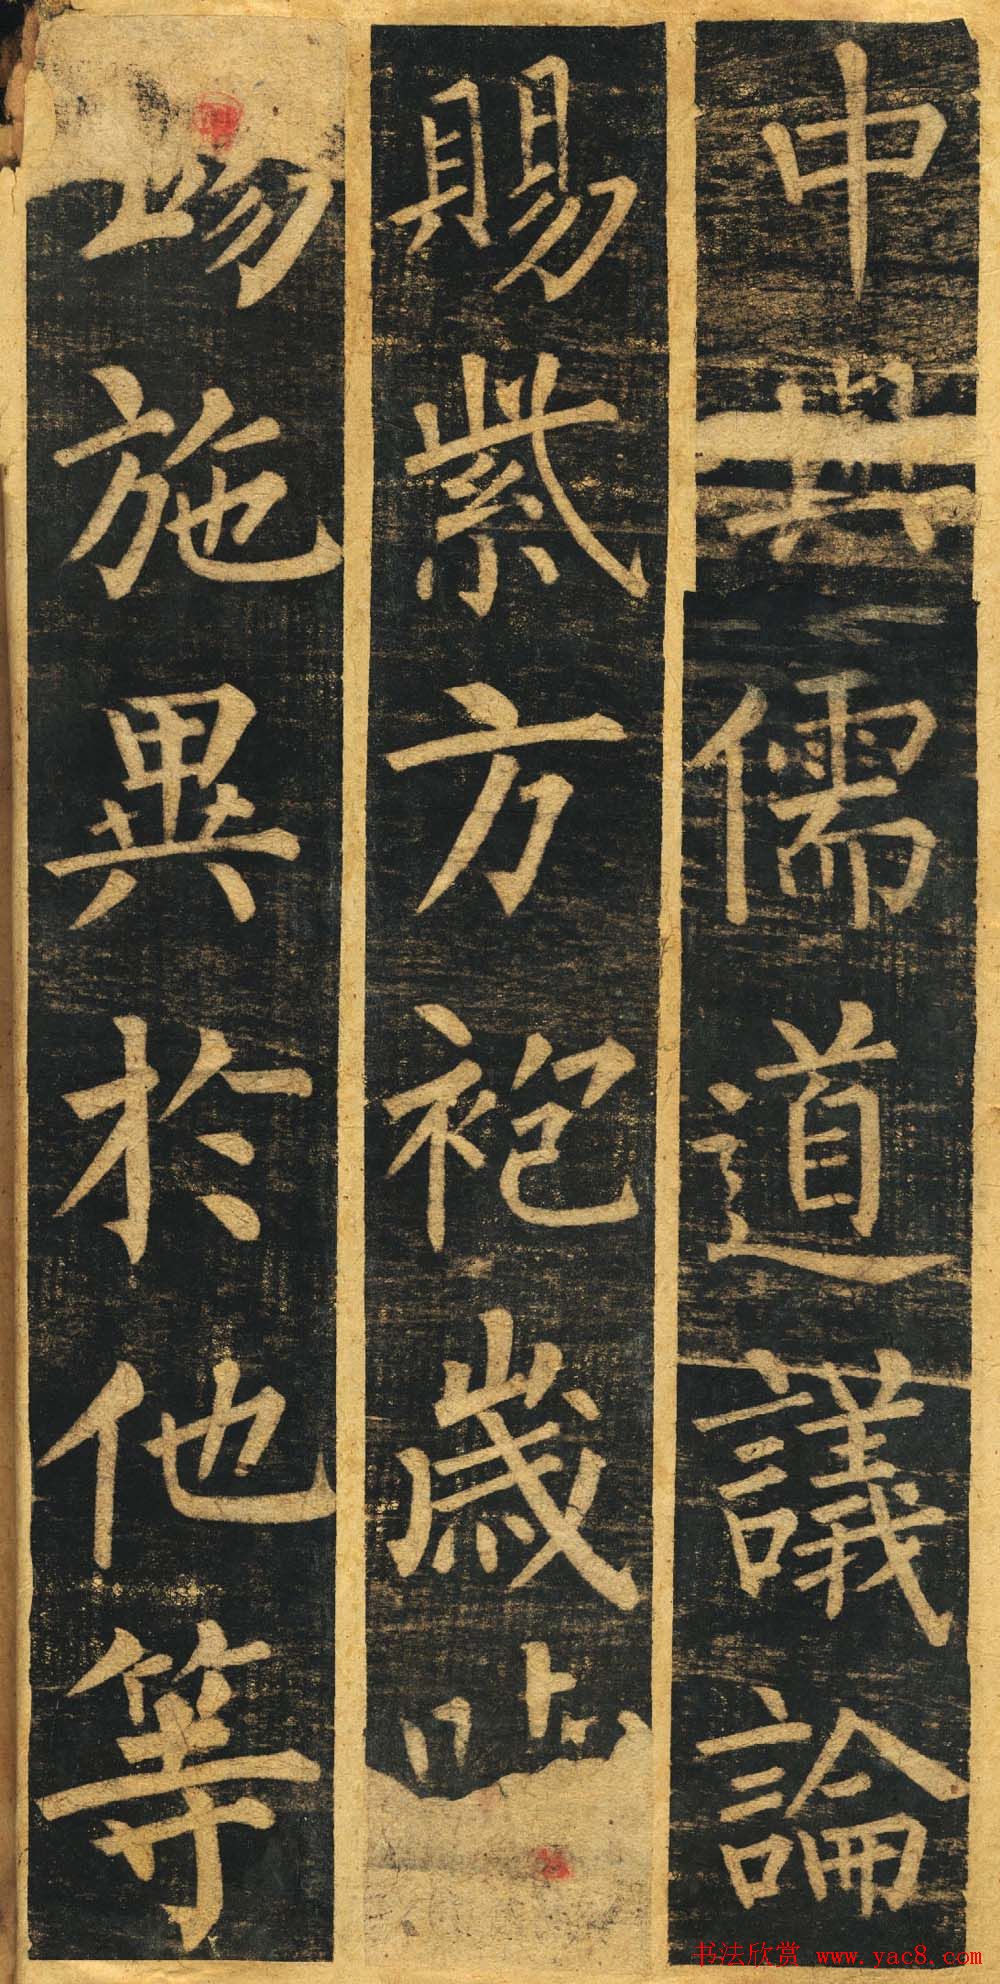 中共儒道議論
賜紫方袍歲
施異於他等
书法欣赏 www.yac8.com